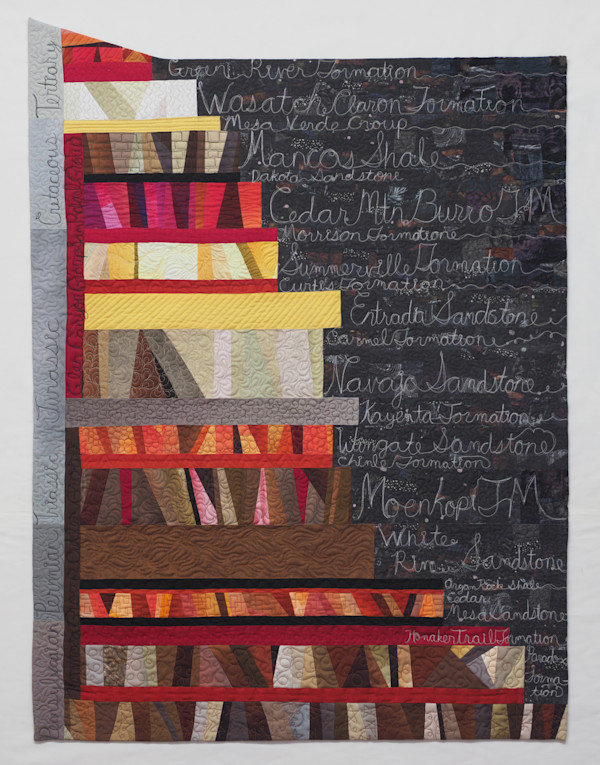 Green River Formation
Wasatch Claron Formation
Mesa Verde Group
Mancos Shale
Dakota Sandstone
Cedar Mtn Burro FM
Morrison Formatione
Summerville Formation
Curtis Formation
Entrada Sandstone
Carmel Formatione
Navajo Sandstone
Kayenta Formation
Wingate Sandstone
Chinle Formation
Moenkopi FM
White
Rim Sandstone
Organ Rock Shale
Cedar
Mesa Sandstone
Honaker Trail Formation
Paradox
Forma-
tion
Tertiary
Cutaceous
Jurassic
Triasic
Permian